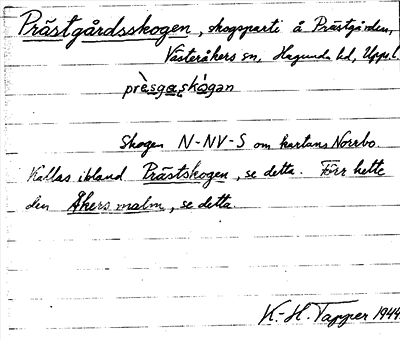 Prästgårdsskogen, skogsparti å Prästgården,
Västeråkers sn, Hagunda hd, Upps.l.
prèsgaskògan
Skogen N-NV-S om kartans Norrbo.
Kallas ibland Prästskogen, se detta. Förr hette
den Åkers malm, se detta.
K.-H. Tapper 1944